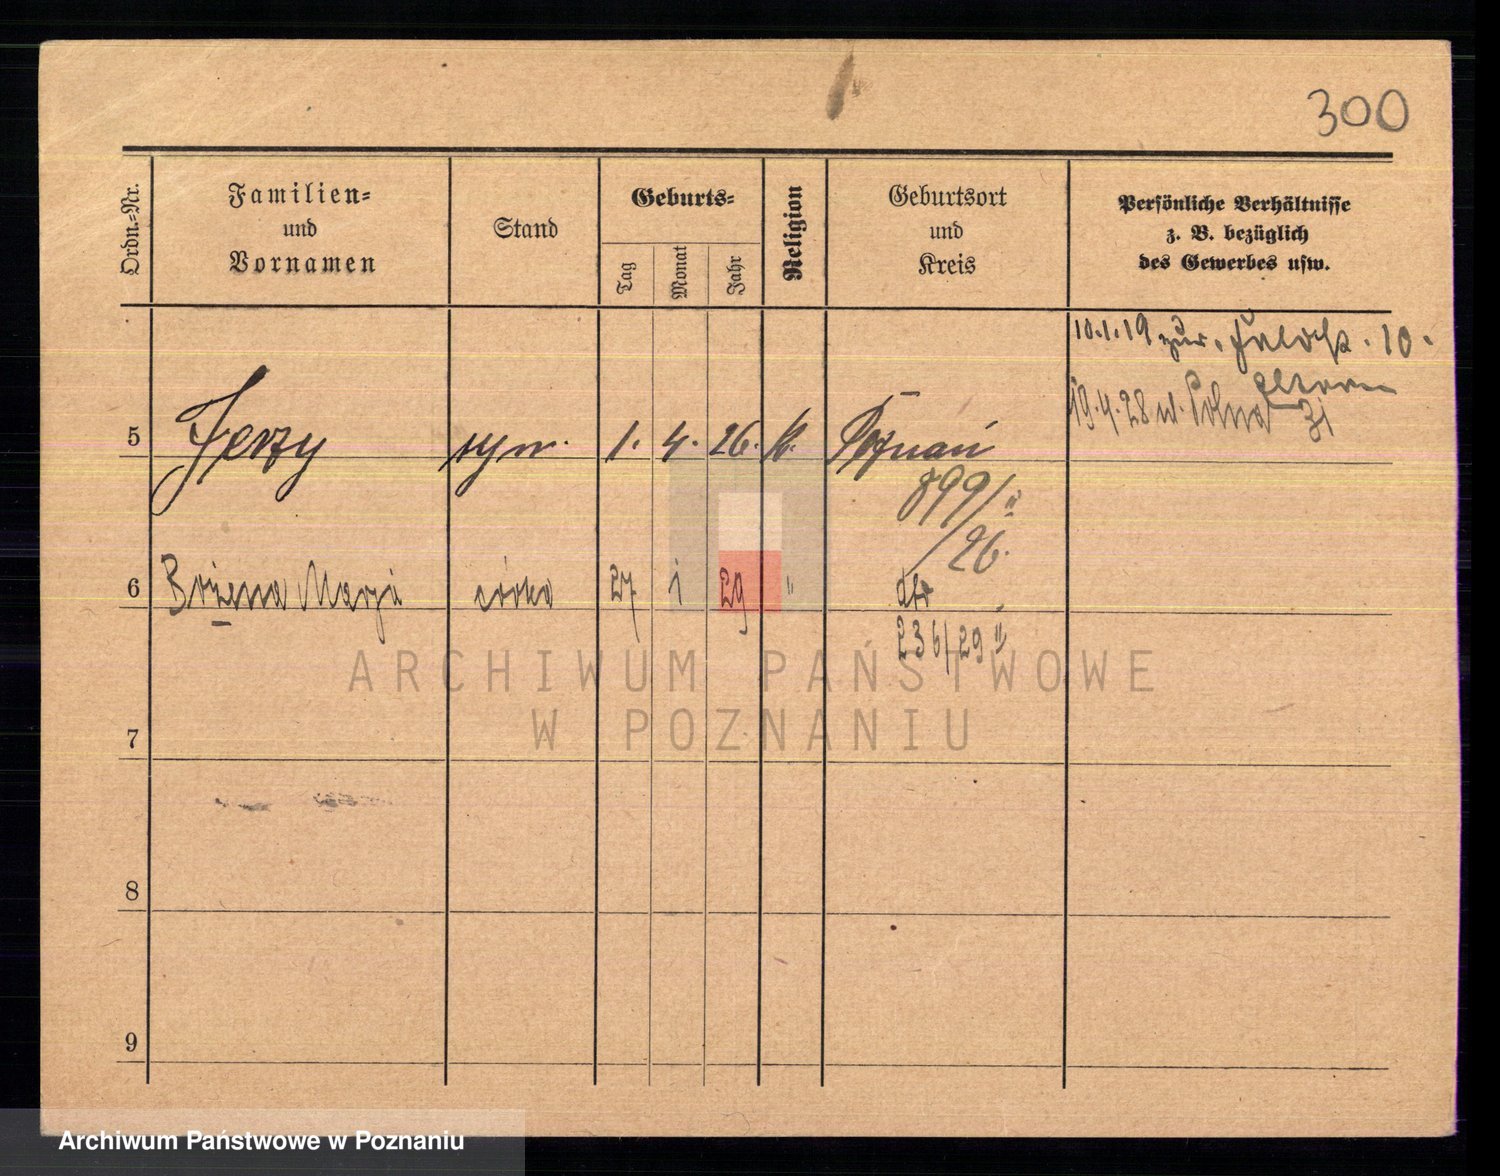 300
Ordn.-Nr.
Familien-
und
Vornamen
Stand
Geburts-
Tag
Monat
Jahr
Religion
Geburtsort
und
Kreis
Persönliche Verhältnisse
z. B. bezüglich
des Gewerbes usw.
10.1.19 zur. 10.
Eltern
19.4.28 u. Polna 31
5 Jerzy syn. 1. 4. 26. k. Poznań
899/II
/26.
6 Bożena Marja córka 27 1 29 " dto
236/29 II
7
8
9
ARCHIWUM PAŃSTWOWE
W POZNANIU
Archiwum Państwowe w Poznaniu